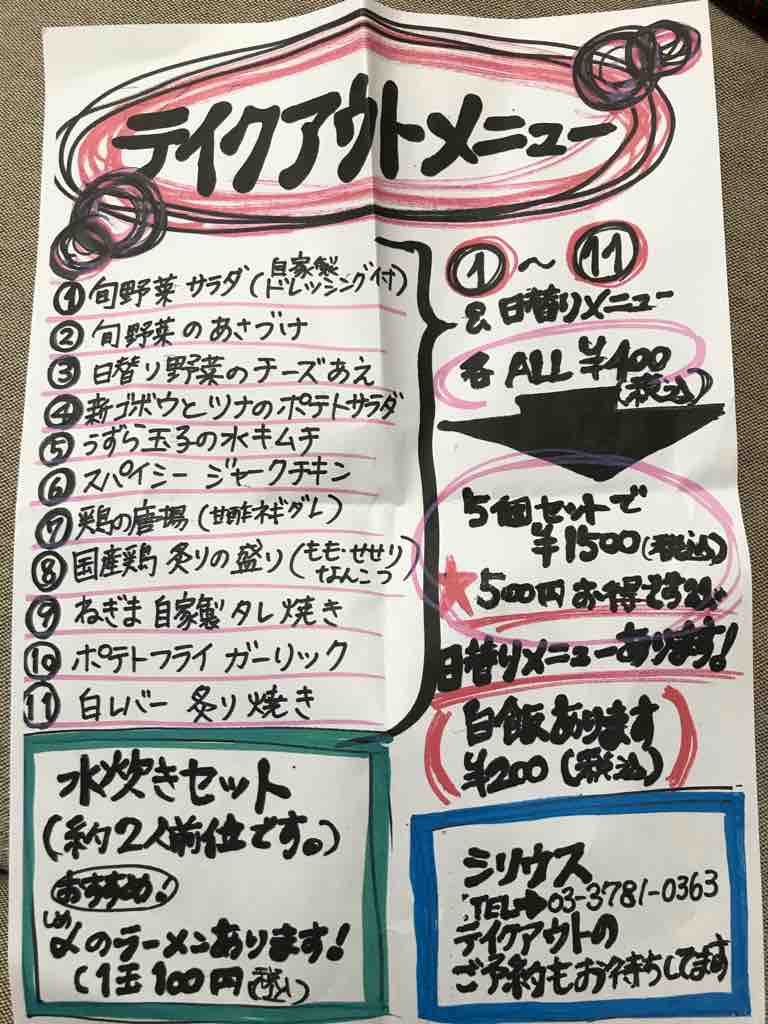 テイクアウトメニュー
① 旬野菜 サラダ (自家製ドレッシング付)
② 旬野菜のあさづけ
③ 日替り野菜のチーズあえ
④ 新ゴボウとツナのポテトサラダ
⑤ うずら玉子の水キムチ
⑥ スパイシー ジャークチキン
⑦ 鶏の唐揚 (甘酢ネギダレ)
⑧ 国産鶏 炙りの盛り (もも・せせり
なんこつ)
⑨ ねぎま 自家製 タレ 焼き
⑩ ポテトフライ ガーリック
⑪ 白レバー 炙り 焼き
①〜⑪
& 日替りメニュー
各 ALL ¥400
(税込)
5個セットで
¥1500(税込)
★500円お得です
日替りメニューあります!
(白飯あります
¥200 (税込))
水炊きセット
(約2人前位です。)
おすすめ!
しめ
〆のラーメンあります!
(1玉100円(税込)
シリウス
TEL➡03-3781-0363
テイクアウトの
ご予約もお待ちしてます